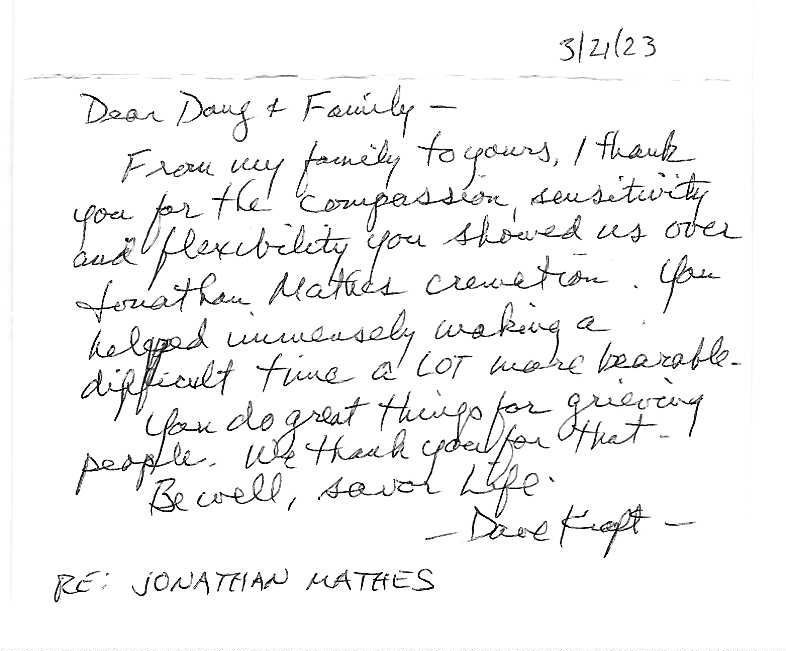 3/21/23
Dear Doug & Family —
From my family to yours, I thank
you for the compassion, sensitivity
and flexibility you showed us over
Jonathan Mathes cremation. You
helped immensely making a
difficult time a LOT more bearable.
You do great things for grieving
people. We thank you for that.
Be well, savor Life.
— Dave Kraft —
RE: JONATHAN MATHES